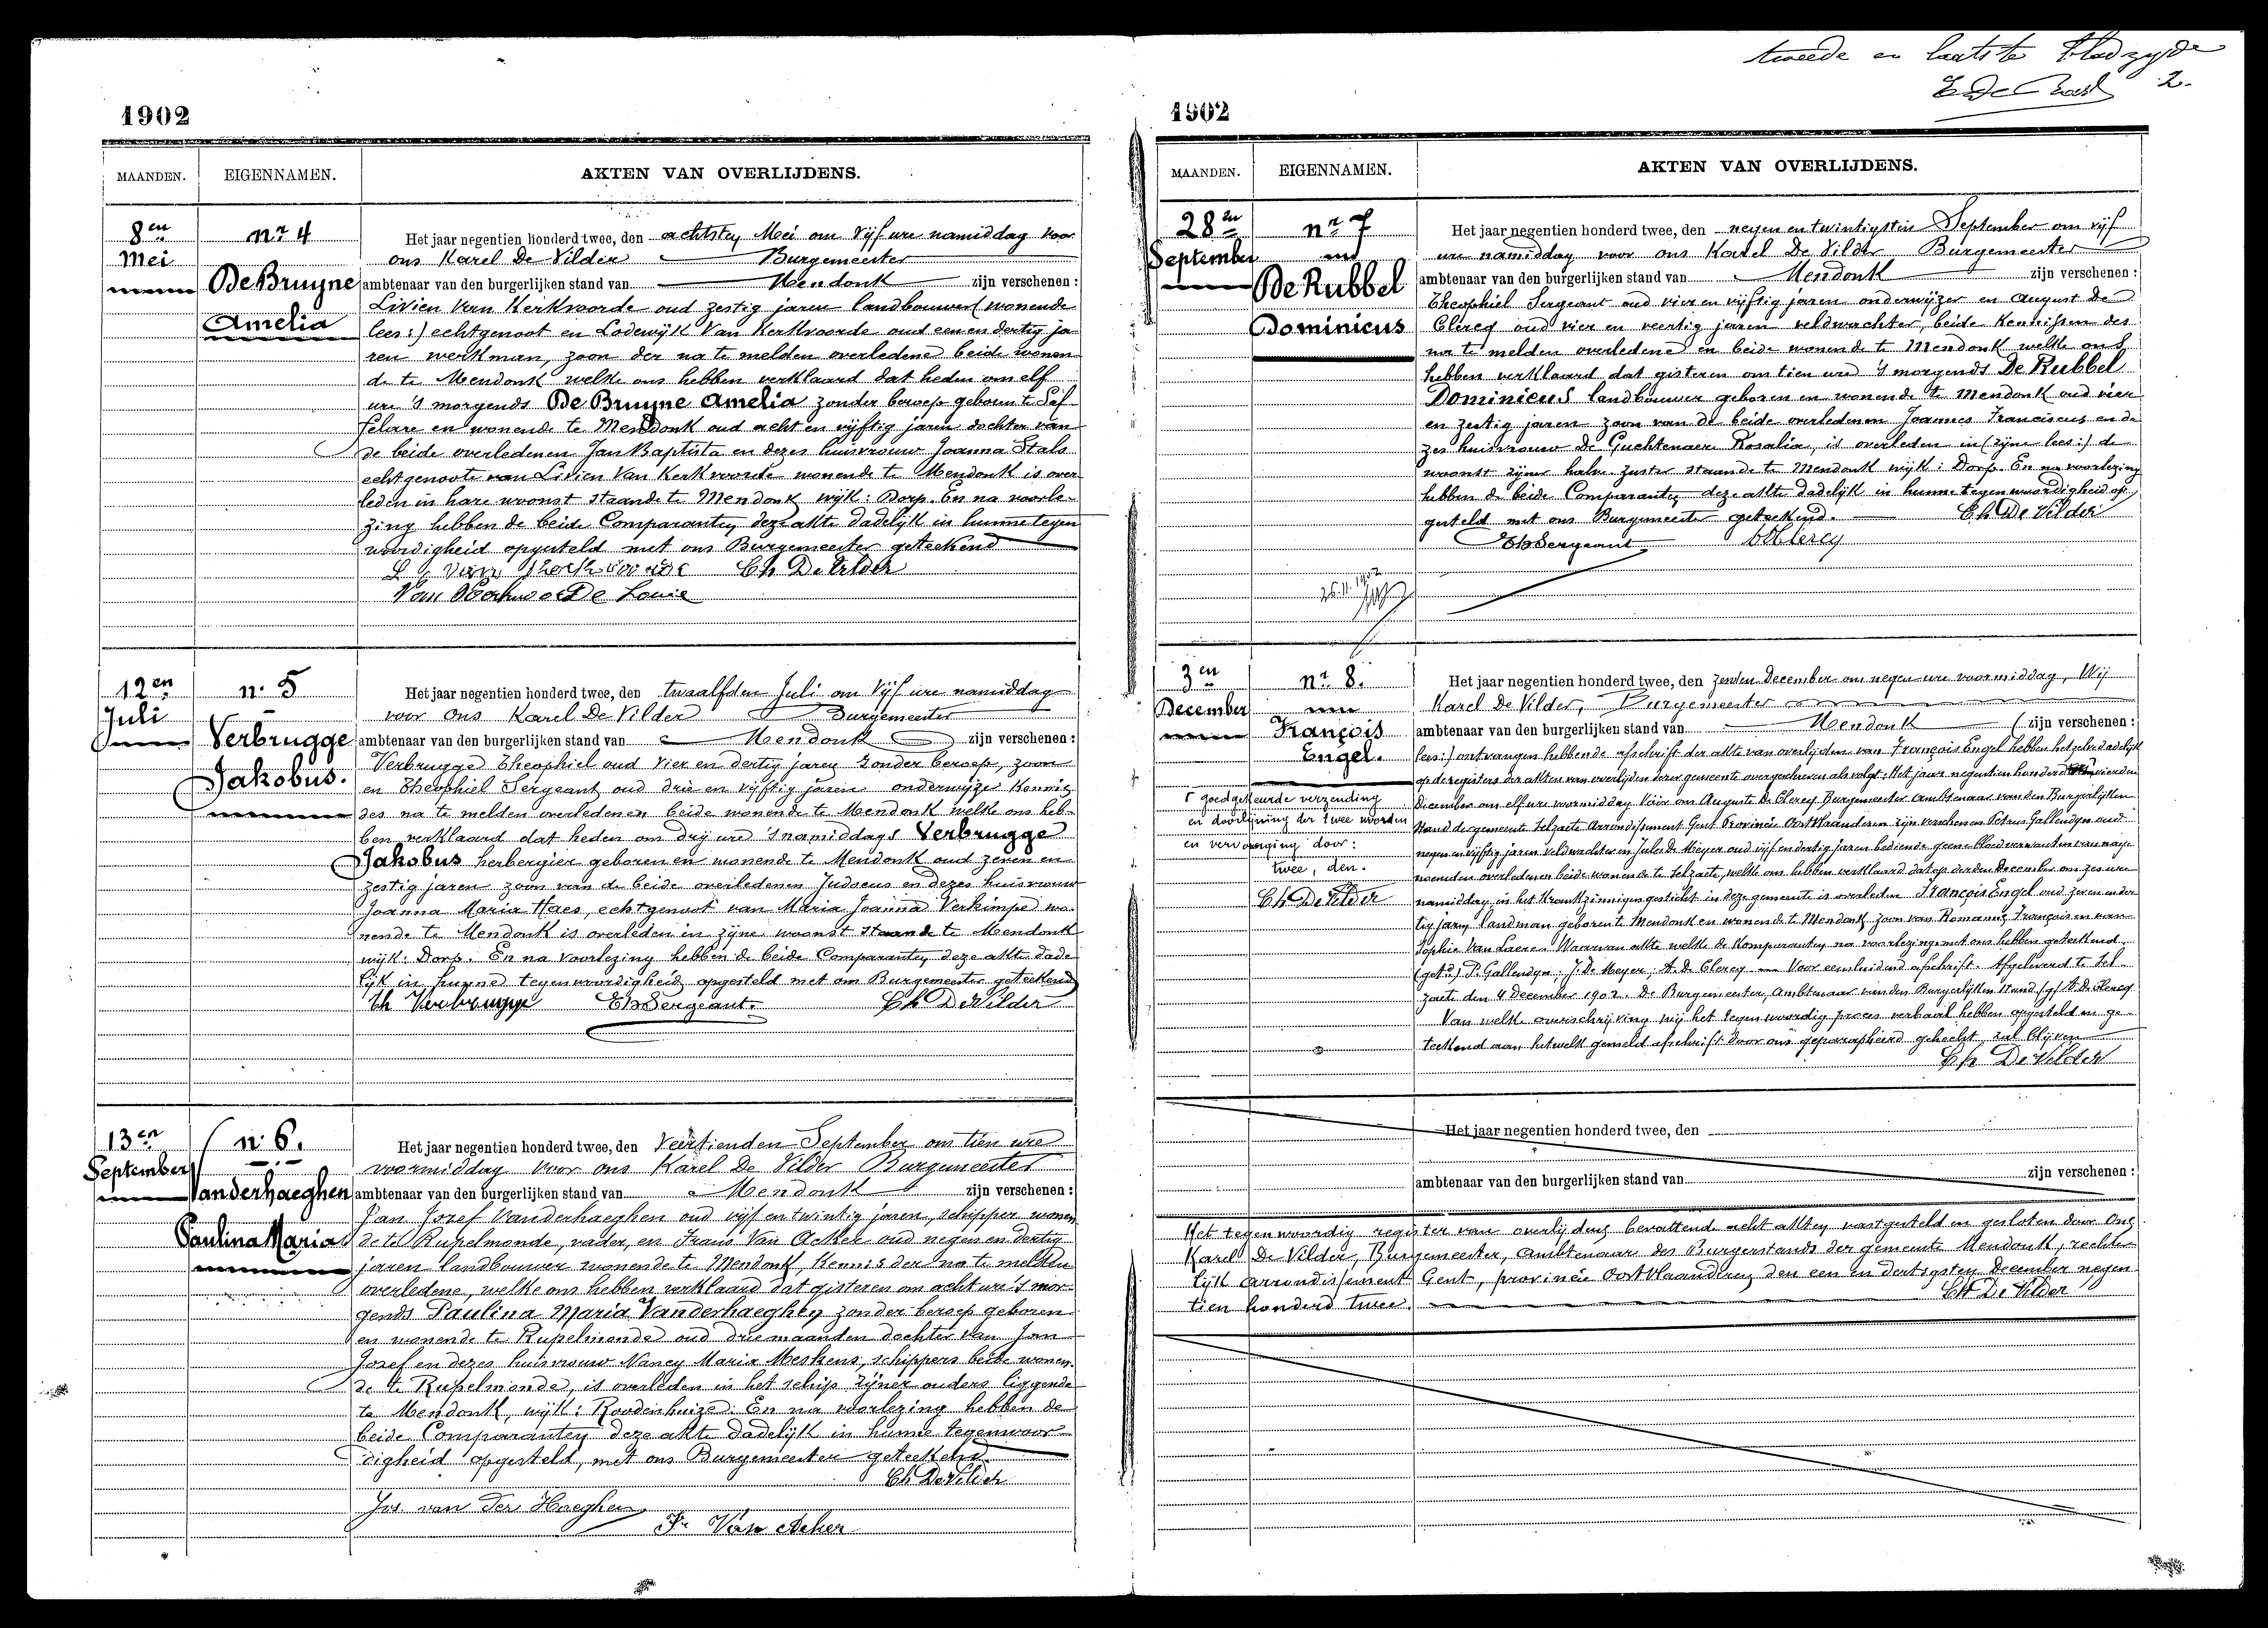 tweede en laatste bladzijde
2.
1902
MAANDEN.
EIGENNAMEN.
AKTEN VAN OVERLIJDENS.
8en
Mei
nr 4
De Bruyne
Amelia
Het jaar negentien honderd twee, den achtsten Mei om vijf ure namiddag voor
ons Karel De Vilder Burgemeester
ambtenaar van den burgerlijken stand van Mendonk zijn verschenen :
Livien Van Kerkvoorde oud zestig jaren landbouwer (wonende
lees:) echtgenoot en Lodewijk Van Kerkvoorde oud een en dertig ja
ren werkman, zoon der na te melden overledene beide wonen
de te Mendonk welke ons hebben verklaard dat heden om elf
ure 's morgends De Bruyne Amelia zonder beroep geboren te Saf
felare en wonende te Mendonk oud acht en vijftig jaren dochter van
de beide overledenen Jan Baptista en dezes huisvrouw Joanna Stals
echtgenoote van Livien Van Kerkvoorde wonende te Mendonk is over
leden in hare woonst staande te Mendonk wijk: Dorp. En na voorle-
zing hebben de beide Comparanten deze akte dadelijk in hunne tegen
woordigheid opgesteld met ons Burgemeester geteekend
Ch De Vilder
12en
Juli
n. 5
Verbrugge
Jakobus.
Het jaar negentien honderd twee, den twaalfden Juli om vijf ure namiddag
voor ons Karel De Vilder Burgemeester
ambtenaar van den burgerlijken stand van Mendonk zijn verschenen :
Verbrugge Theophiel oud vier en dertig jaren zonder beroep, zoon
en Theophiel Sergeant oud drie en vijftig jaren onderwijzer kennis
des na te melden overledenen beide wonende te Mendonk welke ons heb-
ben verklaard dat heden om drij ure 's namiddags Verbrugge
Jakobus herbergier geboren en wonende te Mendonk oud zeven en
zestig jaren zoon van de beide overledenen Judocus en dezes huisvrouw
Joanna Maria Haes, echtgenoot van Maria Joanna Verkimpe wo-
nende te Mendonk is overleden in zijne woonst staande te Mendonk
wijk: Dorp. En na voorlezing hebben de beide Comparanten deze akte dade
lijk in hunne tegenwoordigheid opgesteld met ons Burgemeester geteekend
Th Verbrugge Th Sergeant. Ch De Vilder
13en
September
n. 6.
Vanderhaeghen
Paulina Maria
Het jaar negentien honderd twee, den Veertienden September om tien ure
voormiddag voor ons Karel De Vilder Burgemeester
ambtenaar van den burgerlijken stand van Mendonk zijn verschenen :
Jan Jozef Vanderhaeghen oud vijf en twintig jaren, schipper wonen
de te Rupelmonde, vader, en Frans Van Acker oud negen en dertig
jaren landbouwer wonende te Mendonk, kennis der na te melden
overledene, welke ons hebben verklaard dat gisteren om acht ure 's mor-
gends Paulina Maria Vanderhaeghen zonder beroep geboren
en wonende te Rupelmonde oud drie maanden dochter van Jan
Jozef en dezes huisvrouw Nancy Maria Meskens, schippers beide wonen-
de te Rupelmonde, is overleden in het schip zijner ouders liggende
te Mendonk, wijk: Roodenhuize. En na voorlezing hebben de
beide Comparanten deze akte dadelijk in hunne tegenwoor-
digheid opgesteld, met ons Burgemeester geteekend.
Ch De Vilder
Jos. van der Haeghen
Fr Van Acker
1902
MAANDEN.
EIGENNAMEN.
AKTEN VAN OVERLIJDENS.
28en
September
nr 7
De Rubbel
Dominicus
Het jaar negentien honderd twee, den negen en twintigsten September om vijf
ure namiddag voor ons Karel De Vilder Burgemeester
ambtenaar van den burgerlijken stand van Mendonk zijn verschenen :
Theophiel Sergeant oud vier en vijftig jaren onderwijzer en August De
Clercq oud vier en veertig jaren veldwachter, beide kennissen des
na te melden overledene en beide wonende te Mendonk welke ons
hebben verklaard dat gisteren om tien ure 's morgends De Rubbel
Dominicus landbouwer geboren en wonende te Mendonk oud vier
en zestig jaren zoon van de beide overledenen Joannes Franciscus en de
zes huisvrouw De Guchtenaere Rosalia, is overleden in (zijne lees:) de
woonst zijner halve zuster staande te Mendonk wijk: Dorp. En na voorlezing
hebben de beide Comparanten deze akte dadelijk in hunne tegenwoordigheid op-
gesteld met ons Burgemeester geteekend. Ch De Vilder
Th Sergeant
3en
December
nr 8.
François
Engel.
Het jaar negentien honderd twee, den zesden December om negen ure voormiddag, Wij
Karel De Vilder, Burgemeester
ambtenaar van den burgerlijken stand van Mendonk (zijn verschenen :
lees:) ontvangen hebbende afschrift der akte van overlijden van François Engel hebben hetzelve dadelijk
op de registers der akten van overlijden dezer gemeente overgeschreven als volgt: Het jaar negentien honderd vierden
December om elf ure voormiddag Vóór ons Auguste De Clercq Burgemeester ambtenaar van den Burgerlijken
stand der gemeente Selzaete Arrondissement Gent Provincie Oost Vlaanderen zijn verschenen Petrus Gallendyn oud
negen en vijftig jaren veldwachter en Jules De Meyer oud vijf en dertig jaren bediende geene bloedverwanten van nage
noemden overledenen beide wonende te Selzaete, welke ons hebben verklaard dat op derden December om zes ure
namiddag, in het Krankzinnigengesticht in deze gemeente is overleden François Engel oud zeven en der
tig jaren landman geboren te Mendonk en wonende te Mendonk zoon van Romanus François en van
Sophie Van Laeren. Waarvan akte welke de komparanten na voorlezing met ons hebben geteekend.
(get.d) P. Gallendyn, J. De Meyer, A. De Clercq — Voor eensluidend afschrift. Afgeleverd te Sel-
zaete den 4 December 1902. De Burgemeester, Ambtenaar van den Burgerlijken Stand. (g) A. De Clercq
Van welke overschrijving wij het tegenwoordig proces verbaal hebben opgesteld en ge-
teekend aan hetwelk gemeld afschrift door ons geparapheerd gehecht zal blijven
Ch De Vilder
goedgekeurde verzending
en doorlijning der twee woorden
en vervanging door:
twee, den.
Ch De Vilder
Het jaar negentien honderd twee, den
ambtenaar van den burgerlijken stand van zijn verschenen :
Het tegenwoordig register van overlijdens bevattende acht akten vastgesteld en gesloten door Ons
Karel De Vilder, Burgemeester, Ambtenaar des Burgerstands der gemeente Mendonk, rechter
lijk arrondissement Gent, provincie Oost Vlaanderen, den een en dertigsten December negen
tien honderd twee.
Ch De Vilder